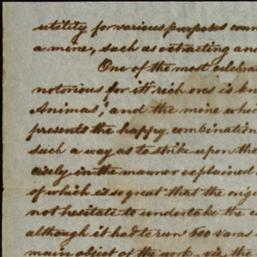 utility for various purposes conn
a mine, such as extracting and
One of the most celebra
notorious for its rich ores is kn
Animas, and the mine whi
presents the happy combination
such a way as to strike upon the
cisely in the manner explained
of which is so great that the orig
not hesitate to undertake the c
although it had to run 600 varas
main object of the work, viz, the